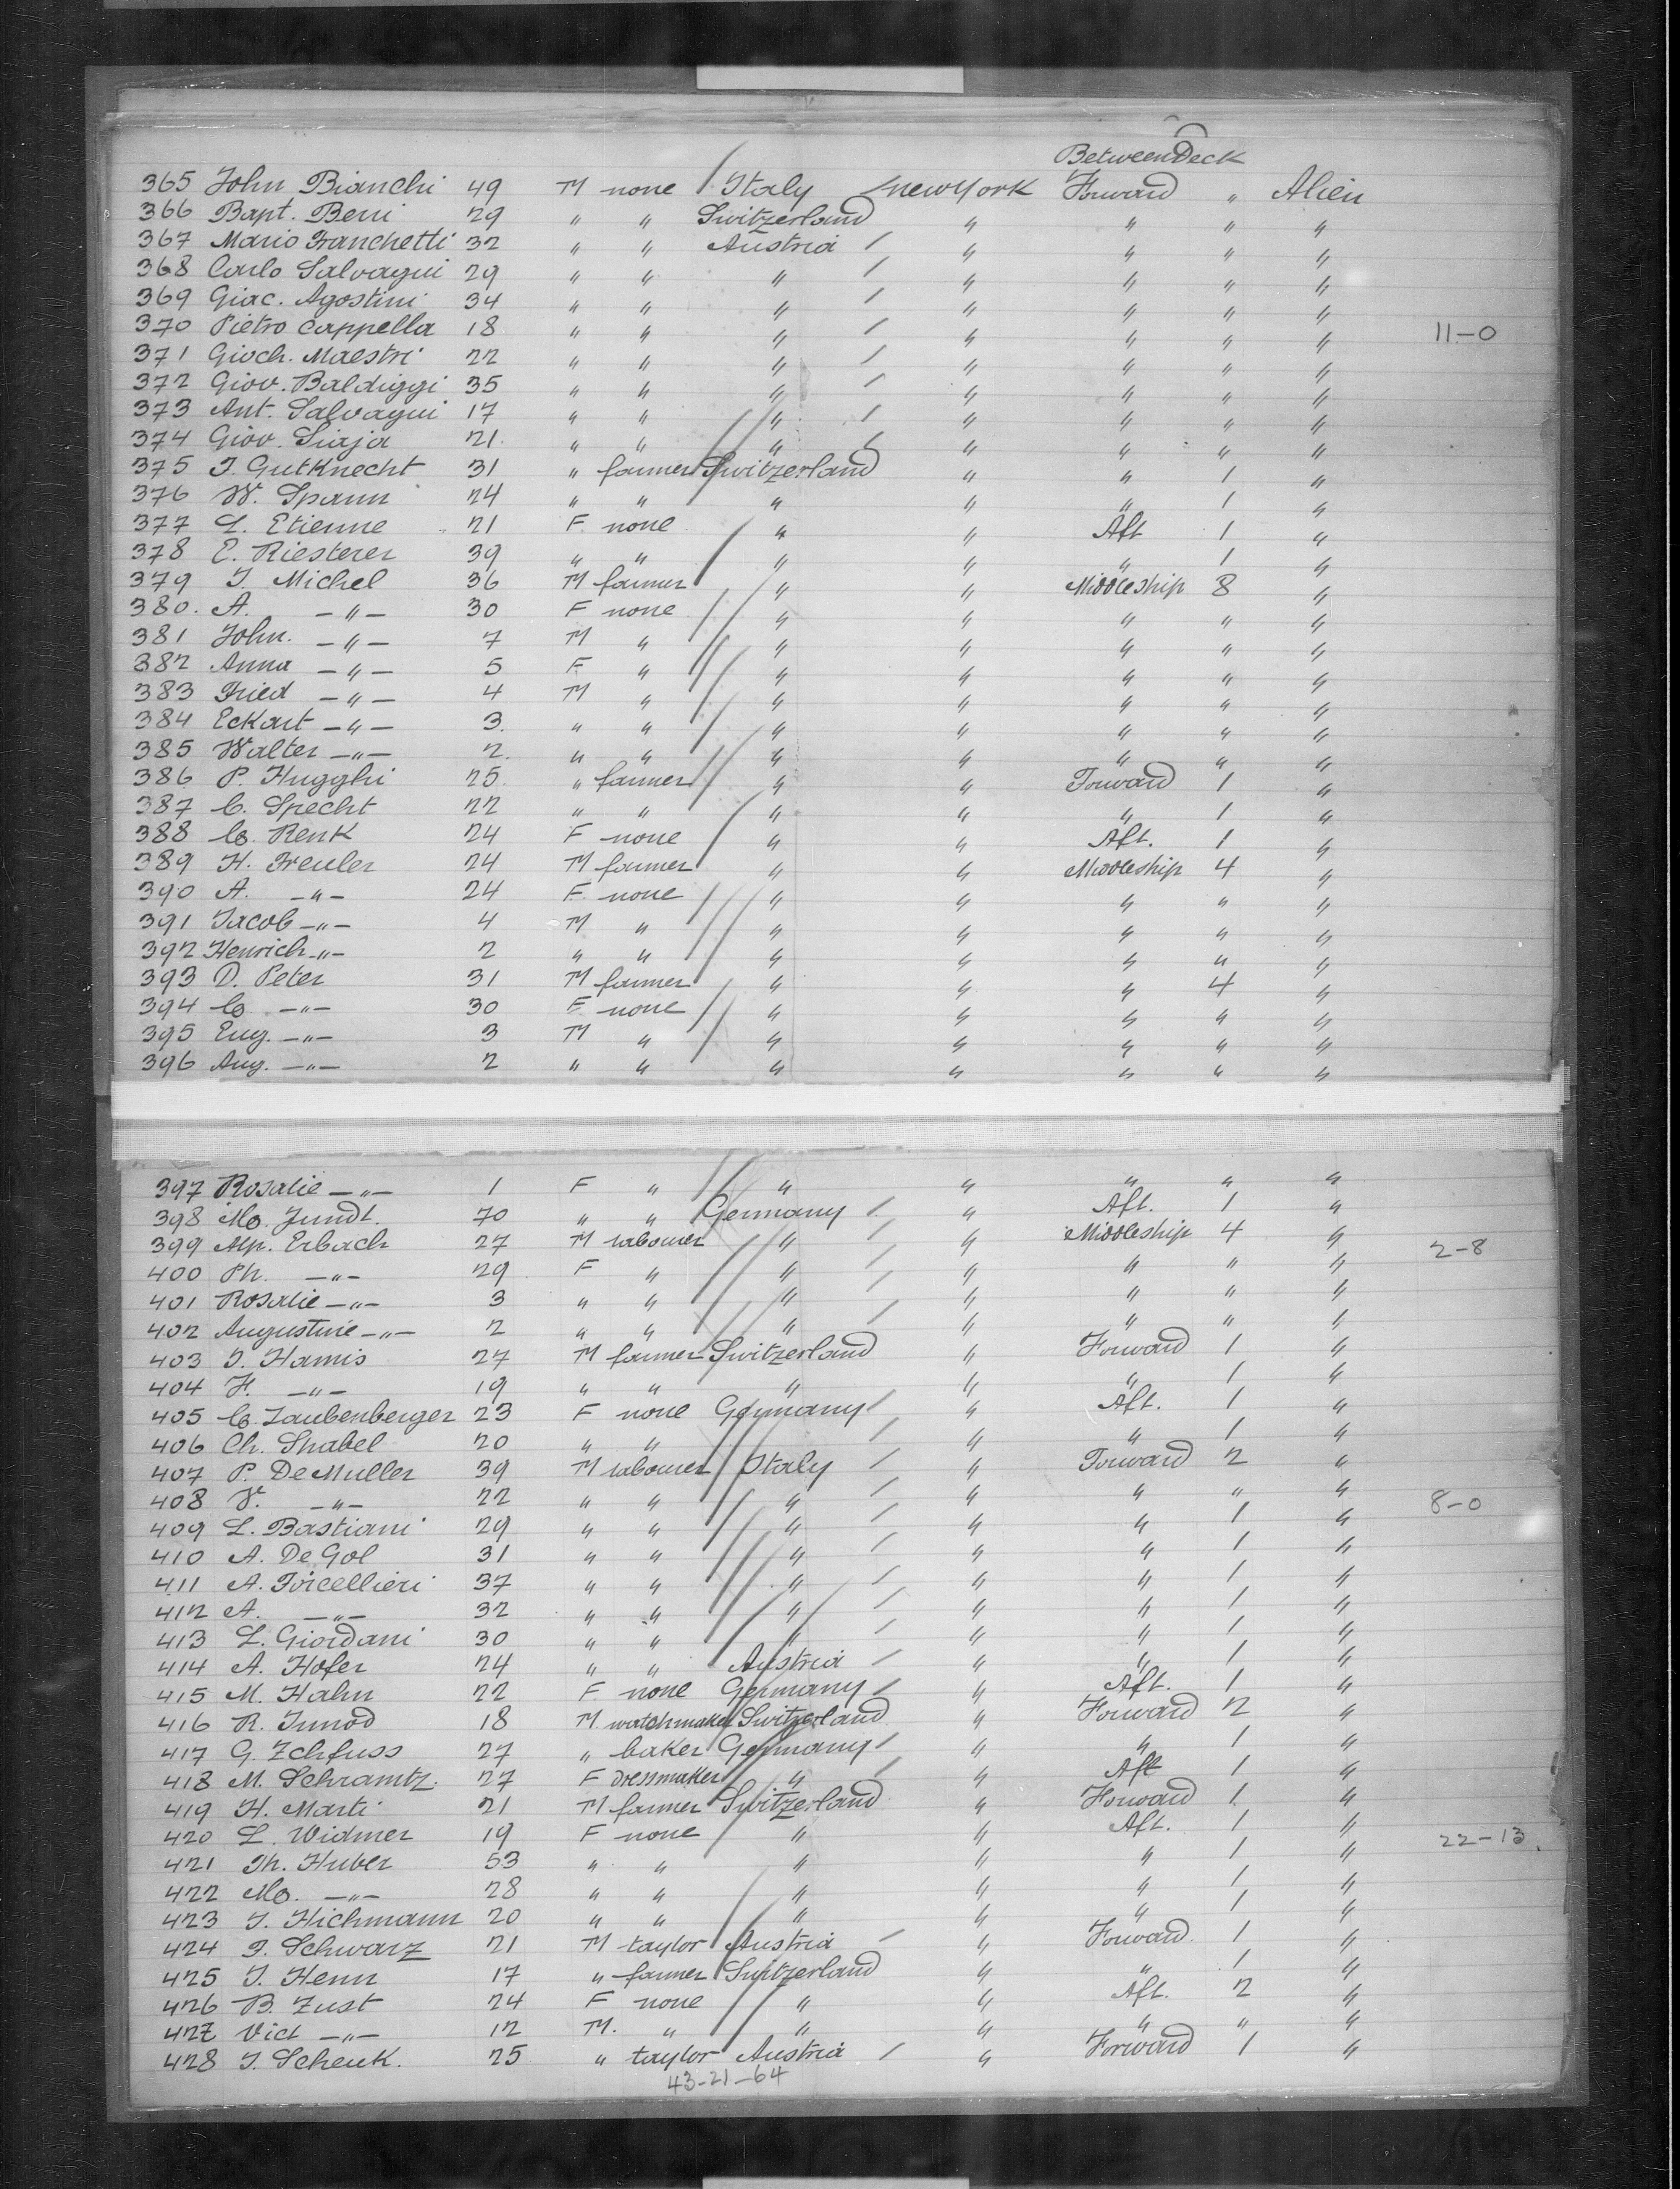 Between Deck
365 John Bianchi 49 M none Italy New York Forward " Alien
366 Bapt. Berri 29 " " Switzerland " " " "
367 Mario Franchetti 32 " " Austria " " " "
368 Carlo Salvagni 29 " " " " " " "
369 Giac. Agostini 34 " " " " " " "
370 Pietro Cappella 18 " " " " " " " 11-0
371 Gioch. Maestri 22 " " " " " " "
372 Giov. Baldiggi 35 " " " " " " "
373 Ant. Salvagni 17 " " " " " " "
374 Giov. Siaja 21 " " " " " " "
375 J. Gutknecht 31 " farmer Switzerland " " 1 "
376 W. Spann 24 " " " " " 1 "
377 L. Etienne 21 F none " " Aft 1 "
378 E. Riesterer 39 " " " " " 1 "
379 J. Michel 36 M farmer " " Middleship 8 "
380. A. -"- 30 F none " " " " "
381 John. -"- 7 M " " " " " "
382 Anna -"- 5 F " " " " " "
383 Fried -"- 4 M " " " " " "
384 Eckart -"- 3. " " " " " " "
385 Walter -"- 2. " " " " " " "
386 P. Hugghi 25 " farmer " " Forward 1 "
387 C. Specht 22 " " " " " 1 "
388 C. Renk 24 F none " " Aft. 1 "
389 H. Freuler 24 M farmer " " Middleship 4 "
390 A. -"- 24 F none " " " " "
391 Jacob -"- 4 M " " " " " "
392 Henrich -"- 2 " " " " " " "
393 D. Peter 31 M farmer " " " 4 "
394 C. -"- 30 F none " " " " "
395 Eug. -"- 3 M " " " " " "
396 Aug. -"- 2 " " " " " " "
397 Rosalie -"- 1 F " " " " " "
398 Mo. Jundt. 70 " " Germany " Aft. 1 "
399 Alp. Erbach 27 M labourer " " Middleship 4 " 2-8
400 Ph. -"- 29 F " " " " " "
401 Rosalie -"- 3 " " " " " " "
402 Augustine -"- 2 " " " " " " "
403 J. Hamis 27 M farmer Switzerland " Forward 1 "
404 F. -"- 19 " " " " " 1 "
405 C. Laubenberger 23 F none Germany " Aft. 1 "
406 Ch. Shabel 20 " " " " 1 "
407 P. DeMuller 39 M labourer Italy " Forward 2 "
408 V. -"- 22 " " " " " " " 8-0
409 L. Bastiani 29 " " " " " 1 "
410 A. DeGol 31 " " " " " 1 "
411 A. Torcellieri 37 " " " " " 1 "
412 A. -"- 32 " " " " " 1 "
413 L. Giordani 30 " " " " " 1 "
414 A. Hofer 24 " " Austria " " 1 "
415 M. Hahn 22 F none Germany " Aft. 1 "
416 R. Junod 18 M watchmaker Switzerland " Forward 2 "
417 G. Zchfuss 27 " baker Germany " " 1 "
418 M. Schramtz. 27 F dressmaker " " Aft 1 "
419 H. Marti 21 M farmer Switzerland " Forward 1 "
420 L. Widmer 19 F none " " Aft. 1 " 22-13
421 Th. Huber 53 " " " " " 1 "
422 Mo. -"- 28 " " " " " 1 "
423 J. Hichmann 20 " " " " " 1 "
424 J. Schwarz 21 M taylor Austria " Forward 1 "
425 J. Henn 17 " farmer Switzerland " " 1 "
426 B. Zust 24 F none " " Aft. 2 "
427 Vict -"- 12 M. " " " " " "
428 J. Schenk. 25 " taylor Austria " Forward 1 "
43-21-64